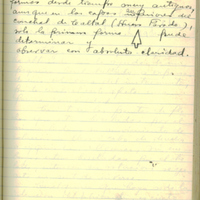 formas desde tiempo muy antiguo,
aunque en las capas inferiores del
conchal de Cacltal (Huaso Parado),
solo la primera forma pude
determinar y
observar con absoluta claridad.